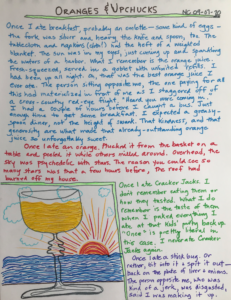 ORANGES & UPCHUCKS
Once I ate breakfast, probably an omelette - some kind of eggs -
the fork was silver and heavy, the knife and spoon, too. The
tablecloth and napkins (debt) had the heft of a weighted
blanket. The sun was in my eyes, just coming up and spangling
the waters of a harbor. What I remember is the orange juice,
fresh-squeezed, served in a goblet with twisted stems. I
had been up all night. Oh, that was the best orange juice I
ever ate. The person sitting opposite me, the one paying for all
this had materialized in front of me as I staggered off of
a cross-country red-eye flight. Heard you were coming in.
I had a couple of hours before I caught a bus. Just
enough time to get some breakfast. I expected a greasy-
spoon diner, not the height of swank. That kindness, and that
generosity are what made that already-outstanding orange
juice so unforgettably sweet.
Once I ate an orange. Plucked it from the basket on a
table and peeled it while others milled around. Overhead, the
sky was psychedelic with stars. The reason you could see so
many stars was that a few hours before, the roof had
burned off my house.
Once I ate Cracker Jacks. I
don't remember eating them or
how they tasted. What I do
remember is the taste of them
when I puked everything I
ate at that kids' party back up.
"Once" is pretty literal in
this case. I never ate Cracker
Jacks again.
Once I ate a stink bug. Or
rather, bit into it & spit it out -
back on the plate of liver & onions.
The person opposite me, who was
kind of a jerk, was disgusted,
said I was making it up.